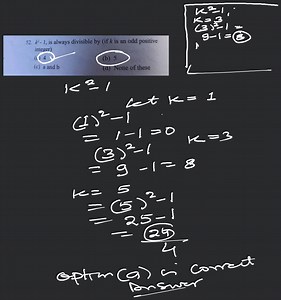 32. k²-1, is always divisible by (if k is an odd positive
integer)
(a) 4
(b) 5
(c) a and b
(d) None of these
k²-1,
k=3
(3)²-1
9-1=8
k²-1
let k=1
(1)²-1
=1-1=0
(3)²-1 k=3
= 9-1=8
k= 5
= (5)²-1
= 25-1
= 24
4
option (a) is correct
Answer